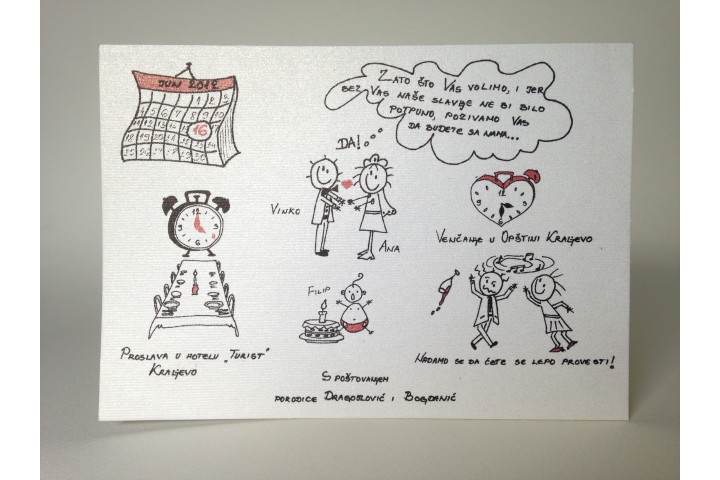 JUN 2012
1 2 3
16
ZATO ŠTO VAS VOLIMO, I JER
BEZ VAS NAŠE SLAVLJE NE BI BILO
POTPUNO, POZIVAMO VAS
DA BUDETE SA NAMA...
DA!
VINKO
ANA
12
6
12
6
VENČANJE U OPŠTINI KRALJEVO
FILIP
PROSLAVA U HOTELU „TURIST"
KRALJEVO
NADAMO SE DA ĆETE SE LEPO PROVESTI!
S POŠTOVANJEM
PORODICE DRAGOSLOVIĆ I BOGDANIĆ